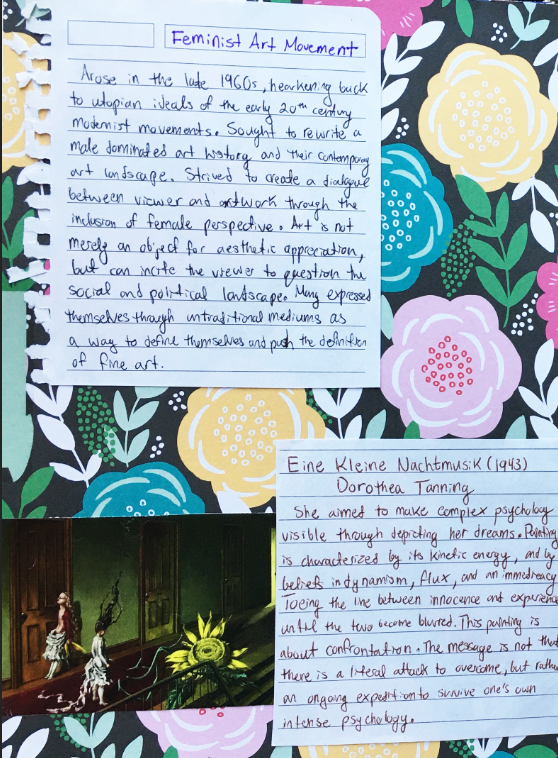 Feminist Art Movement
Arose in the late 1960s, hearkening back
to utopian ideals of the early 20th century
modernist movements. Sought to rewrite a
male dominated art history and their contemporary
art landscape. Strived to create a dialogue
between viewer and artwork through the
inclusion of female perspective. Art is not
merely an object for aesthetic appreciation,
but can incite the viewer to question the
social and political landscape. Many expressed
themselves through untraditional mediums as
a way to define themselves and push the definition
of fine art.
Eine Kleine Nachtmusik (1943)
Dorothea Tanning
She aimed to make complex psychology
visible through depicting her dreams. Painting
is characterized by its kinetic energy, and by
beliefs in dynamism, flux, and an immediacy
Toeing the line between innocence and experience
until the two become blurred. This painting is
about confrontation. The message is not that
there is a literal attack to overcome, but rather
an ongoing expedition to survive one's own
intense psychology.